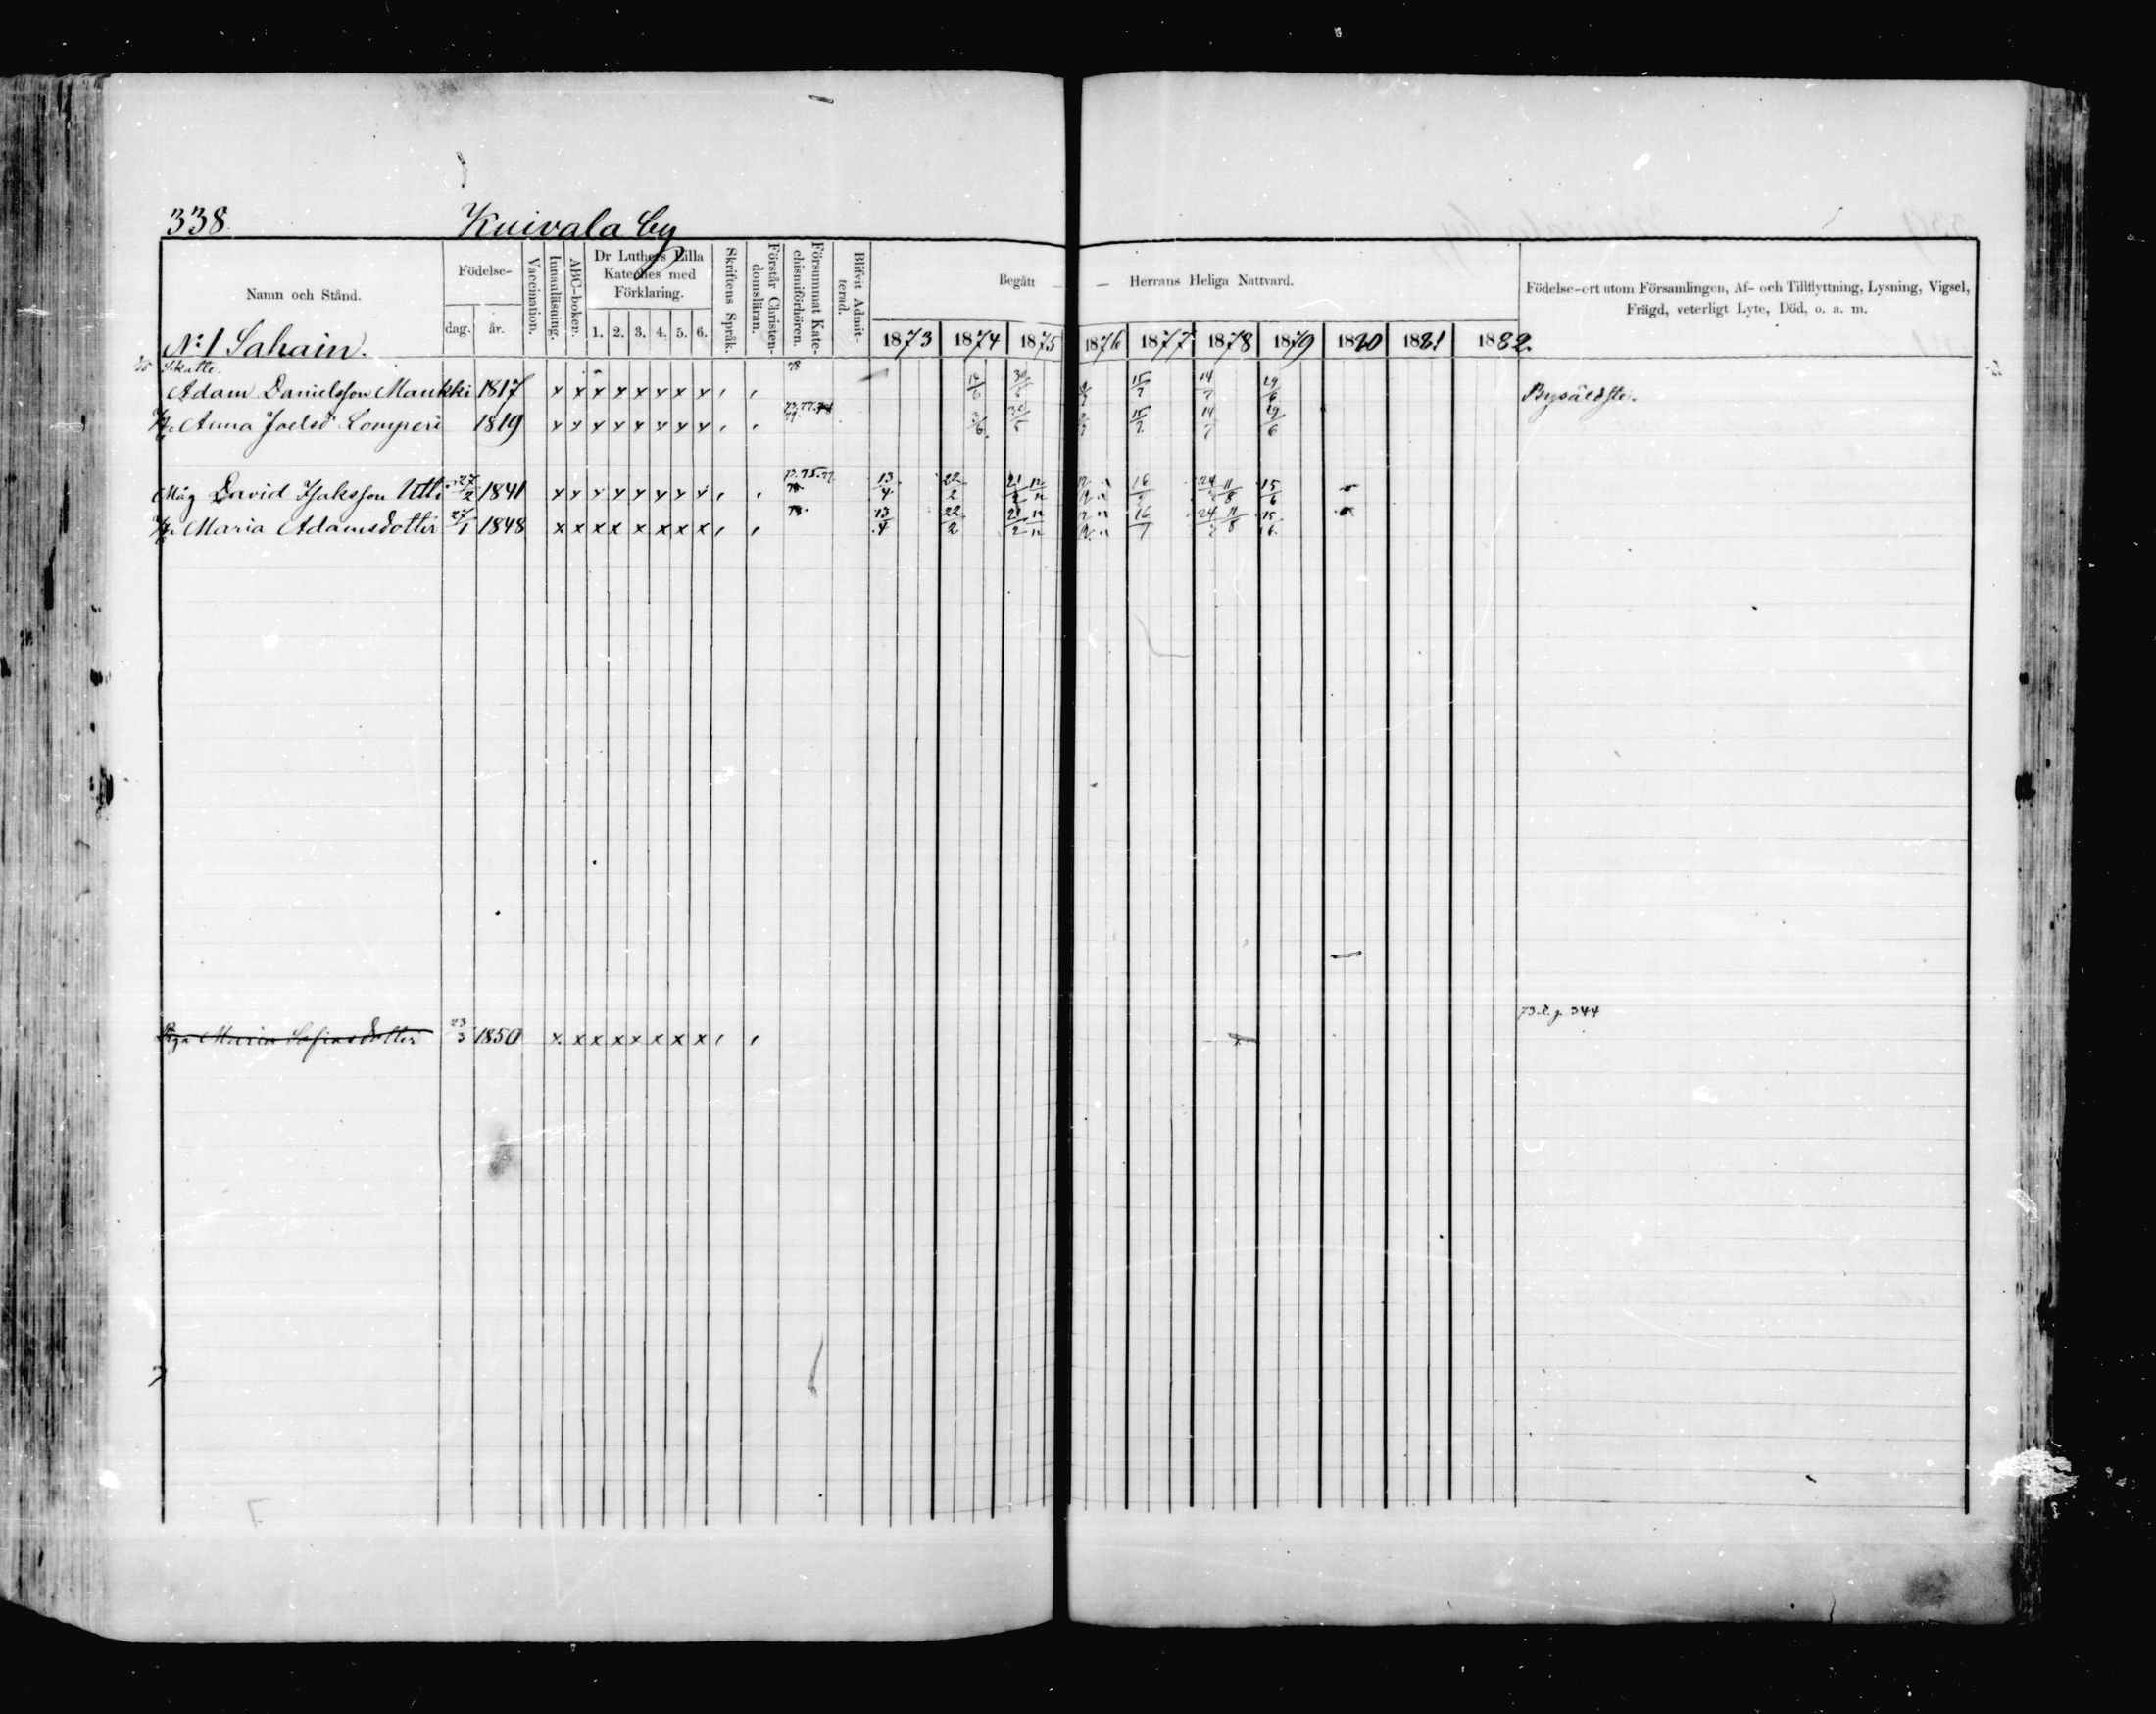 338.
Kuivala by
Namn och Stånd.
Födelse-
dag.
år.
Vaccination.
Innanläsning.
ABC-boken.
Dr Luthers Lilla
Kateches med
Förklaring.
1. 2. 3. 4. 5. 6.
Skriftens Språk.
Förstår Christen-
domsläran.
Försummat Kate-
chismiförhören.
Blifvit Admit-
terad.
Begått — — Herrans Heliga Nattvard.
1873 1874 1875 1876 1877 1878 1879 1880 1881 1882.
Födelse-ort utom Församlingen, Af- och Tillflyttning, Lysning, Vigsel,
Frägd, veterligt Lyte, Död, o. a. m.
N:1 Sahain.
Skatte.
78
Adam Danielsson Maukki 1817 x x x x x x x x 30/5 15/7 14/7 29/6
Anna Joelsd Lomperi 1819 x x x x x x x x 3/6 30/5 15/7 14/7 29/6
Måg David Isaksson Utti 27/2 1841 x x x x x x x x 13/4 22/2 21/2 12/12 16/7 24/2 11/8 15/6
78.
Maria Adamsdotter 27/1 1848 x x x x x x x x 13/4 22/2 21/2 12/12 16/7 24/2 11/8 15/6
73. 344
Maria 23/3 1850 x x x x x x x x